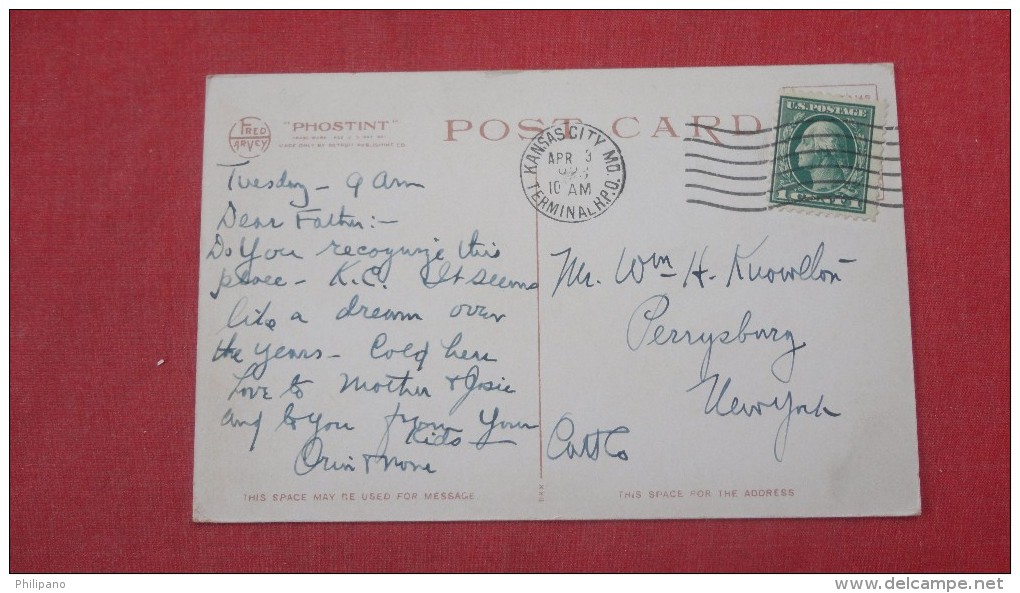 FRED HARVEY
"PHOSTINT"
POST CARD
KANSAS CITY, MO.
APR 3
10 AM
TERMINAL R.P.O.
U.S. POSTAGE
1 1
Tuesday - 9 am
Dear Father:-
Do You recognize this
place - K.C. It seems
like a dream over
the years - Cold here
Love to Mother & Josie
and to you from your
Kids -
Orin &
Mr. Wm H. Knowlton
Perrysburg
New York
Catt Co
THIS SPACE MAY BE USED FOR MESSAGE
THIS SPACE FOR THE ADDRESS
Philipano
www.delcampe.net